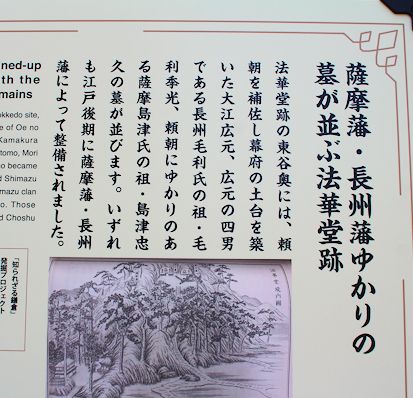 薩摩藩・長州藩ゆかりの
墓が並ぶ法華堂跡
法華堂跡の東谷奥には、頼
朝を補佐し幕府の土台を築
いた大江広元、広元の四男
である長州毛利氏の祖・毛
利季光、頼朝にゆかりのあ
る薩摩島津氏の祖・島津忠
久の墓が並びます。いずれ
も江戸後期に薩摩藩・長州
藩によって整備されました。
ned-up
th the
mains
kkedo site,
e of Oe no
Kamakura
tomo, Mori
no became
d Shimazu
mazu clan
o. Those
d Choshu
「知られてる鎌倉」
発掘プロジェクト